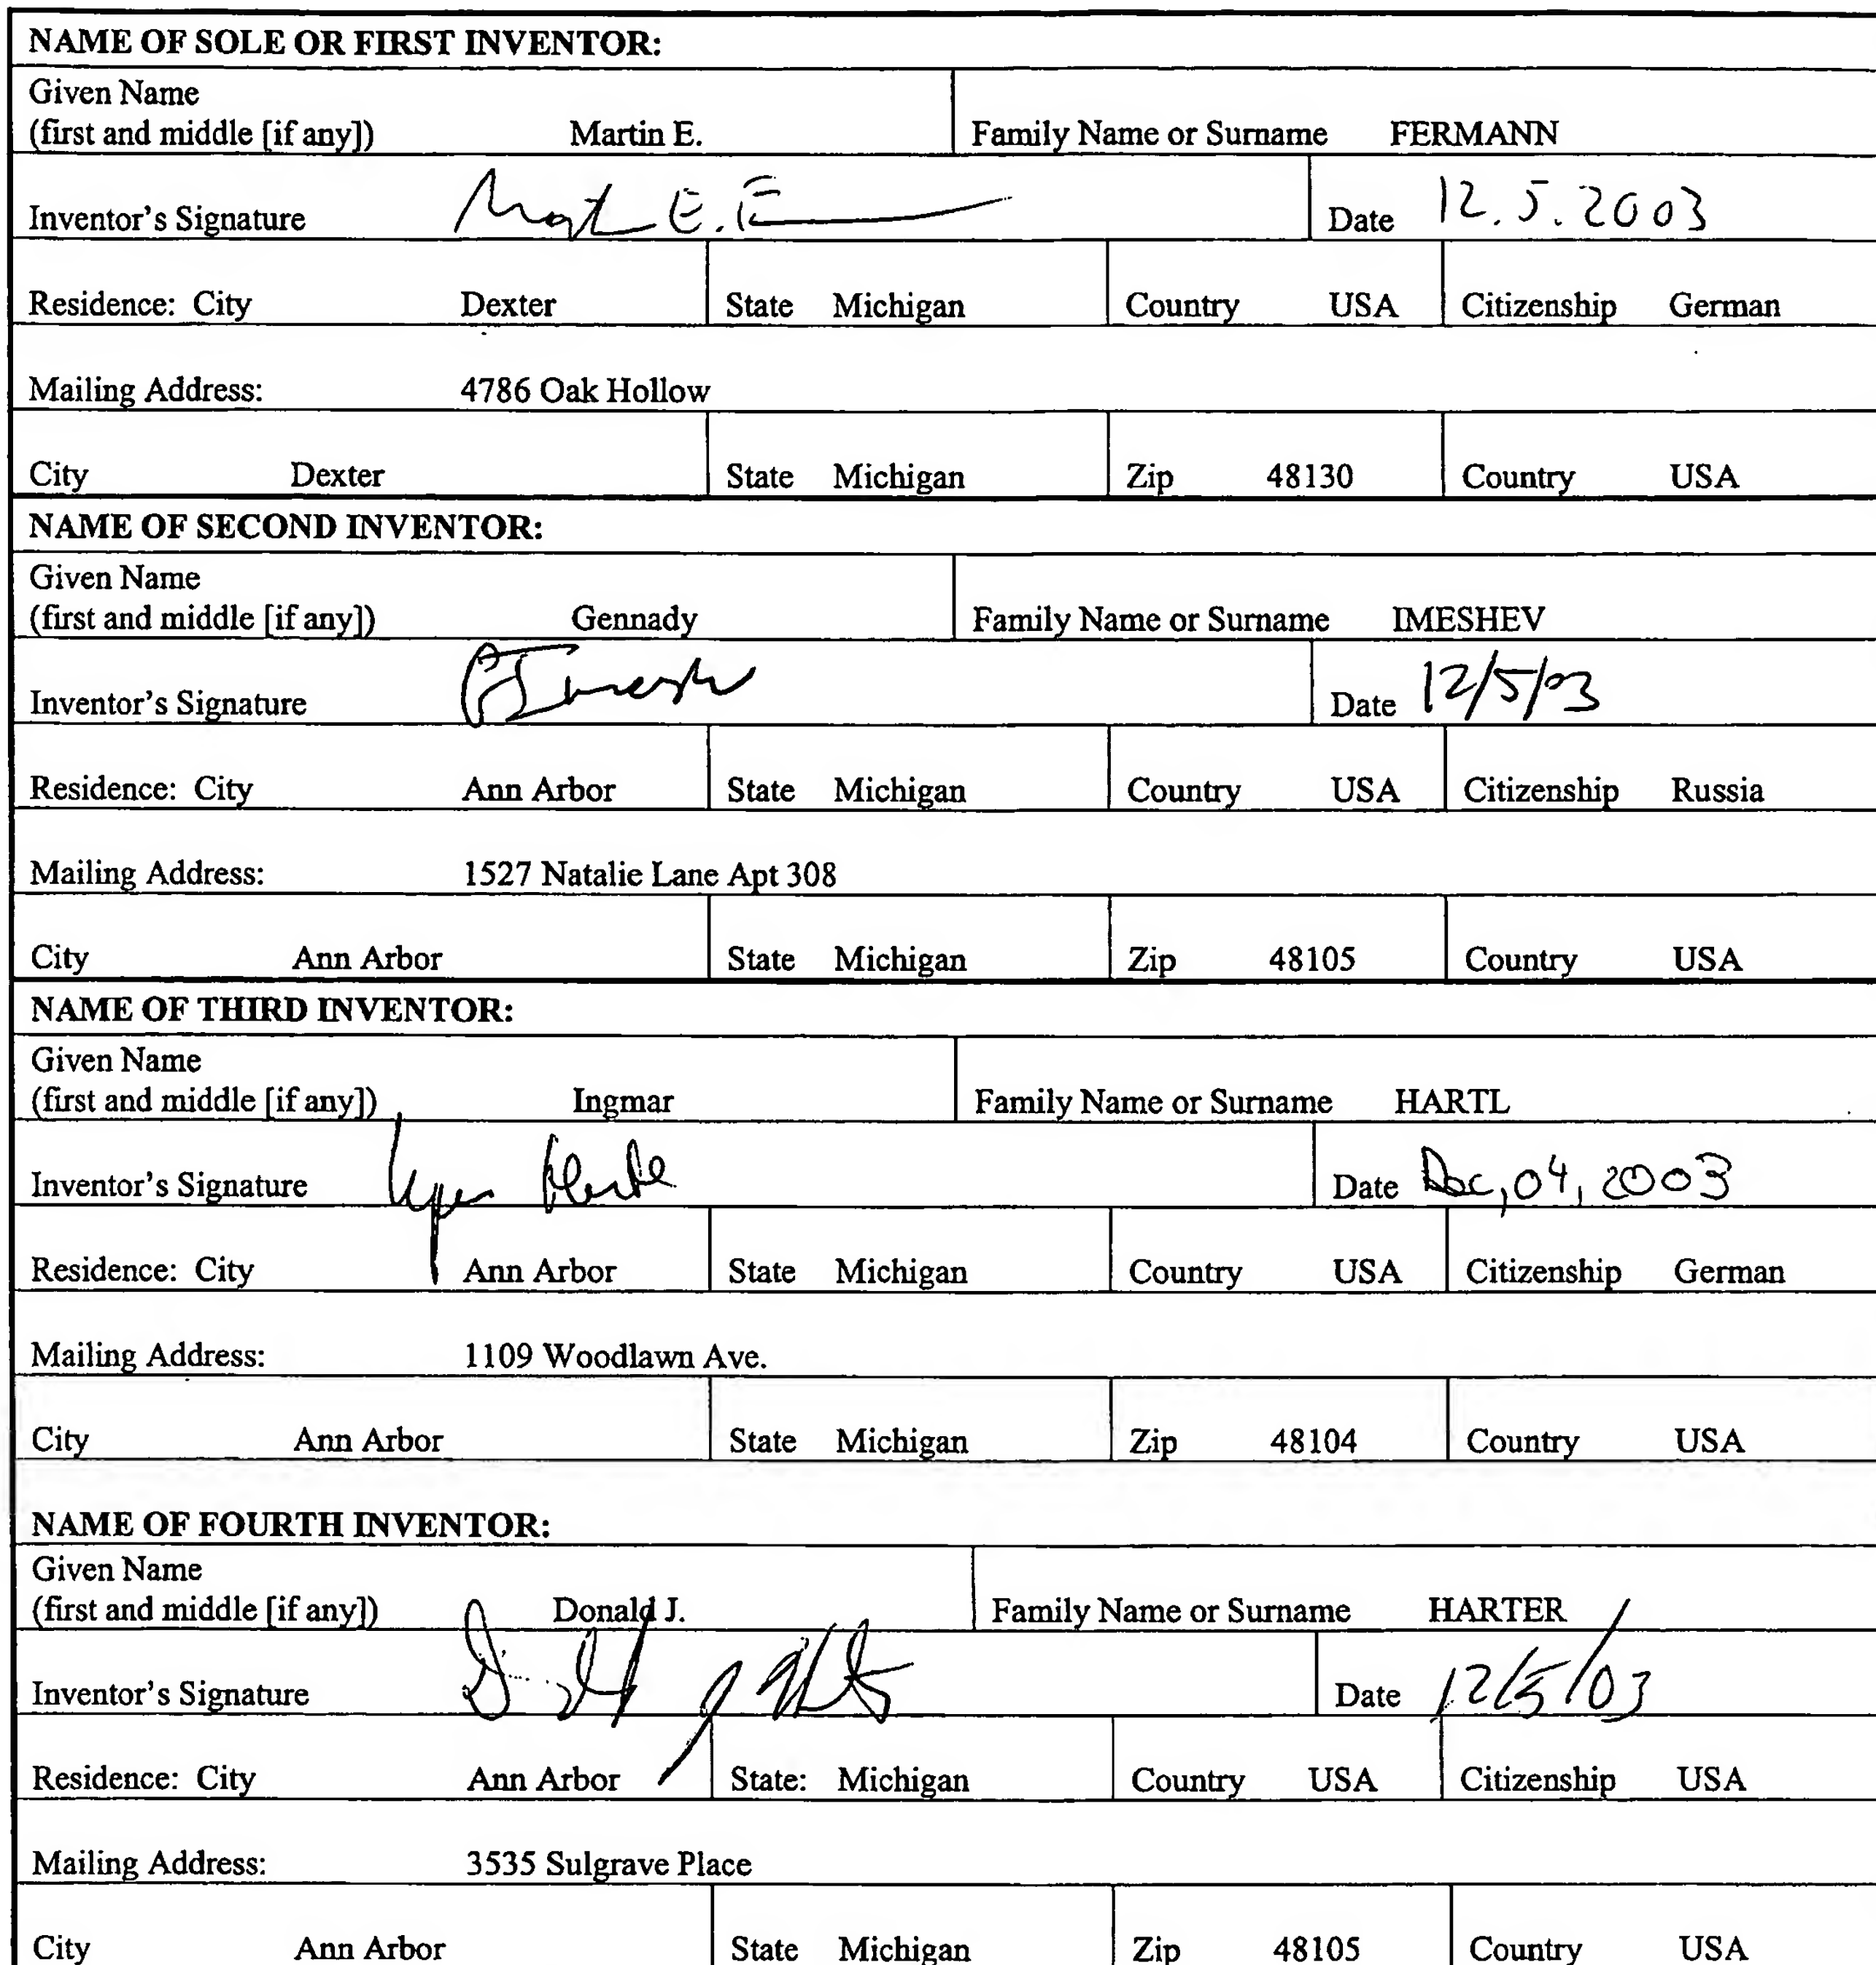 NAME OF SOLE OR FIRST INVENTOR:
Given Name
(first and middle [if any]) Martin E. Family Name or Surname FERMANN
Inventor's Signature E. Date 12.5.2003
Residence: City Dexter State Michigan Country USA Citizenship German
Mailing Address: 4786 Oak Hollow
City Dexter State Michigan Zip 48130 Country USA
NAME OF SECOND INVENTOR:
Given Name
(first and middle [if any]) Gennady Family Name or Surname IMESHEV
Inventor's Signature Date 12/5/03
Residence: City Ann Arbor State Michigan Country USA Citizenship Russia
Mailing Address: 1527 Natalie Lane Apt 308
City Ann Arbor State Michigan Zip 48105 Country USA
NAME OF THIRD INVENTOR:
Given Name
(first and middle [if any]) Ingmar Family Name or Surname HARTL
Inventor's Signature Date Dec, 04, 2003
Residence: City Ann Arbor State Michigan Country USA Citizenship German
Mailing Address: 1109 Woodlawn Ave.
City Ann Arbor State Michigan Zip 48104 Country USA
NAME OF FOURTH INVENTOR:
Given Name
(first and middle [if any]) Donald J. Family Name or Surname HARTER
Inventor's Signature Date 12/5/03
Residence: City Ann Arbor State: Michigan Country USA Citizenship USA
Mailing Address: 3535 Sulgrave Place
City Ann Arbor State Michigan Zip 48105 Country USA